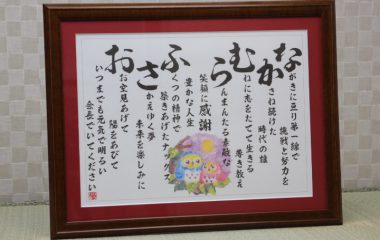 ながきに亘り第一線で
挑戦と努力を
かさね続けた
時代の雄
むねに志をたてて生きる
尊き教え
らんまんたる素敵な
笑顔に感謝
豊かな人生
ふくつの精神で
築きあげたナック
さかえゆく夢
未来を楽しみに
お空見あげて
陽をあびて
いつまでも元気で明るい
会長でいてください